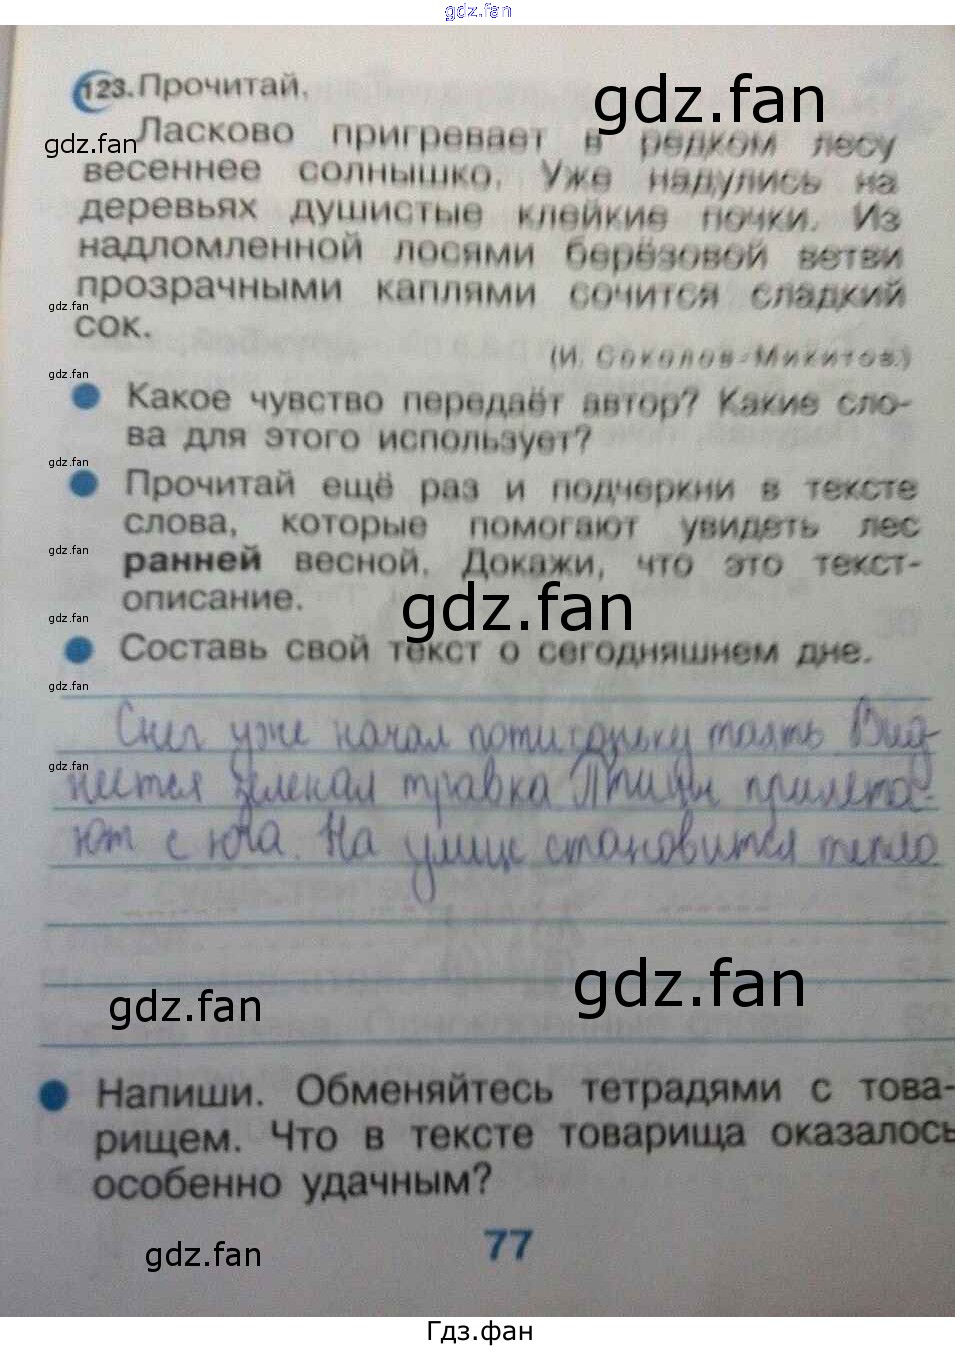 gdz.fan
123. Прочитай.
gdz.fan
gdz.fan
Ласково пригревает в редком лесу
весеннее солнышко. Уже надулись на
деревьях душистые клейкие почки. Из
надломленной лосями берёзовой ветви
прозрачными каплями сочится сладкий
gdz.fan
сок.
(И. Соколов-Микитов.)
gdz.fan
Какое чувство передаёт автор? Какие сло-
ва для этого использует?
gdz.fan
Прочитай ещё раз и подчеркни в тексте
слова, которые помогают увидеть лес
gdz.fan
ранней весной. Докажи, что это текст-
описание.
gdz.fan
gdz.fan
Составь свой текст о сегодняшнем дне.
gdz.fan
Снег уже начал потихоньку таять Вид-
gdz.fan
неется зеленая травка Птицы прилета-
ют с юга. На улице становится тепло
gdz.fan
gdz.fan
Напиши. Обменяйтесь тетрадями с това-
рищем. Что в тексте товарища оказалось
особенно удачным?
77
gdz.fan
Гдз.фан